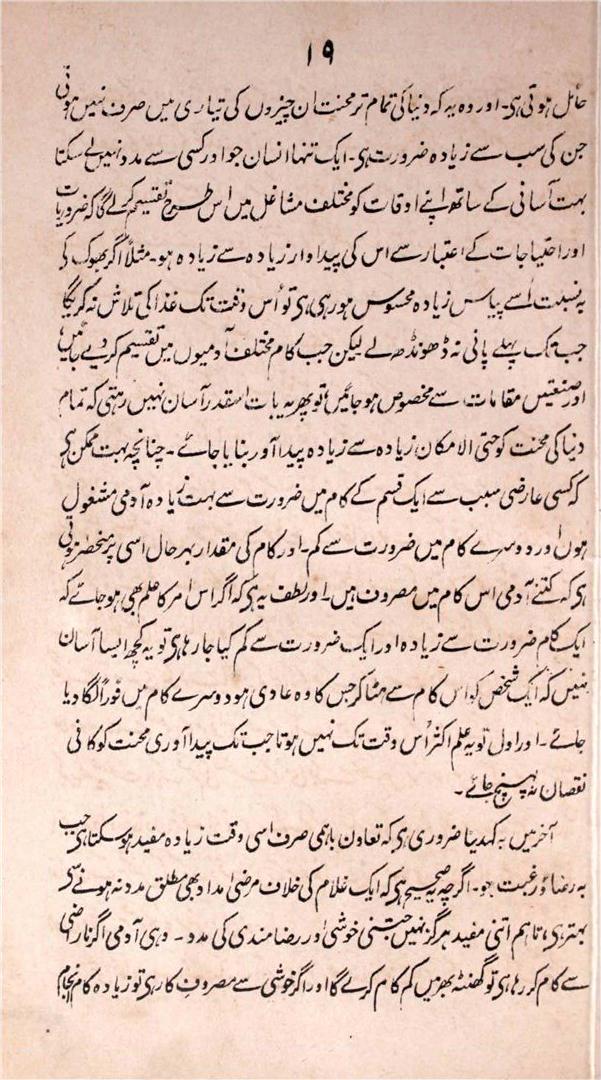 ۱۹
حائل ہوتی ہی۔ اور وہ یہ کہ دنیا کی تمام تر محنت ان چیزوں کی تیاری میں صرف نہیں ہوتی
جن کی سب سے زیادہ ضرورت ہی۔ ایک تنہا انسان جو اور کسی سے مدد نہیں لے سکتا
بہت آسانی کے ساتھ اپنے اوقات کو مختلف مشاغل میں اس طرح تقسیم کرلے گا کہ ضروریات
اور احتیاجات کے اعتبار سے اس کی پیداوار زیادہ سے زیادہ ہو۔ مثلاً اگر بھوک کی
بہ نسبت اُسے پیاس زیادہ محسوس ہورہی ہی تو اُس وقت تک غذا کی تلاش نہ کریگا
جب تک پہلے پانی نہ ڈھونڈھ لے لیکن جب کام مختلف آدمیوں میں تقسیم کردیے جائیں
اور صنعتیں مقامات سے مخصوص ہوجائیں تو پھر یہ بات اسقدر آسان نہیں رہتی کہ تمام
دنیا کی محنت کو حتی الامکان زیادہ سے زیادہ پیداآور بنایا جائے۔ چنانچہ بہت ممکن ہی
کہ کسی عارضی سبب سے ایک قسم کے کام میں ضرورت سے بہت زیادہ آدمی مشغول
ہوں اور دوسرے کام میں ضرورت سے کم۔ اور کام کی مقدار بہرحال اسی پر منحصر ہوتی
ہی کہ کتنے آدمی اس کام میں مصروف ہیں۔ اور لطف یہ ہی کہ اگر اس امر کا علم بھی ہوجائے کہ
ایک کام ضرورت سے زیادہ اور ایک ضرورت سے کم کیا جارہا ہی تو یہ کچھ ایسا آسان
نہیں کہ ایک شخص کو اس کام سے ہٹا کر جس کا وہ عادی ہو دوسرے کام میں فوراً لگا دیا
جائے۔ اور اول تو یہ علم اکثر اُس وقت تک نہیں ہوتا جب تک پیداآوری محنت کو کافی
نقصان نہ پہنچ جائے۔
آخر میں یہ کہدینا ضروری ہی کہ تعاون باہمی صرف اسی وقت زیادہ مفید ہوسکتا ہی جب
بہ رضا و رغبت ہو۔ اگرچہ یہ صحیح ہی کہ ایک غلام کی خلاف مرضی امداد بھی مطلق مدد نہ ہونے سے
بہتر ہی، تاہم اتنی مفید ہرگز نہیں جتنی خوشی اور رضامندی کی مدد۔ وہی آدمی اگر ناراضی
سے کام کررہا ہی تو گھنٹہ بھر میں کم کام کرلے گا اور اگر خوشی سے مصروفِ کار ہی تو زیادہ کام انجام